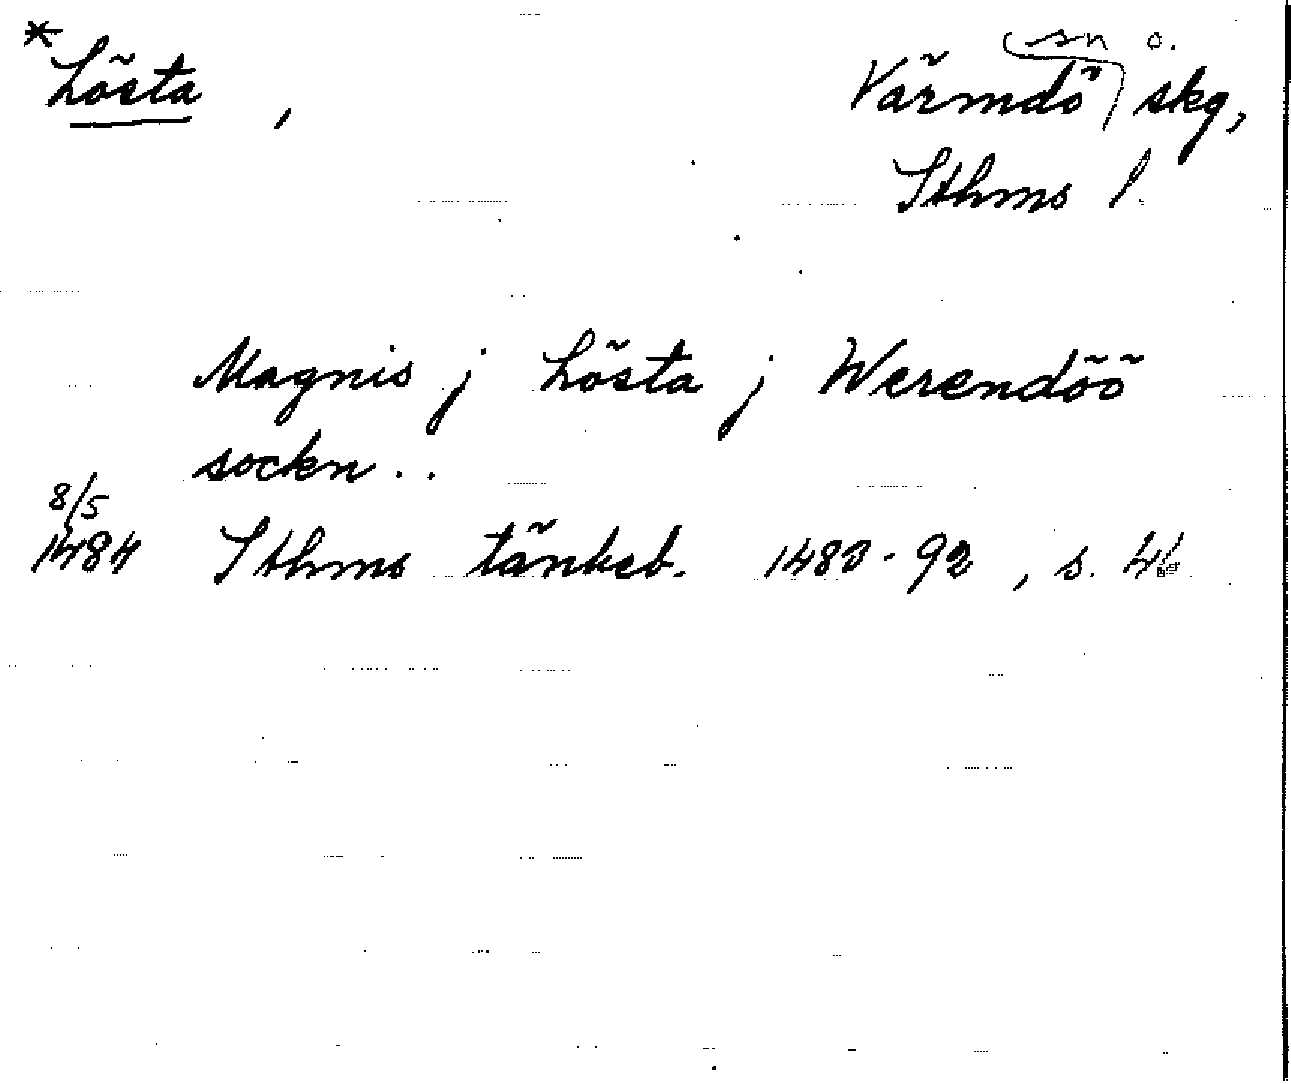 * Lösta , Värmdö sn o. skg,
Sthms l.
Magnis j Lösta j Werendöö
sockn..
8/5
1484 Sthms tänkeb. 1483-92, s.